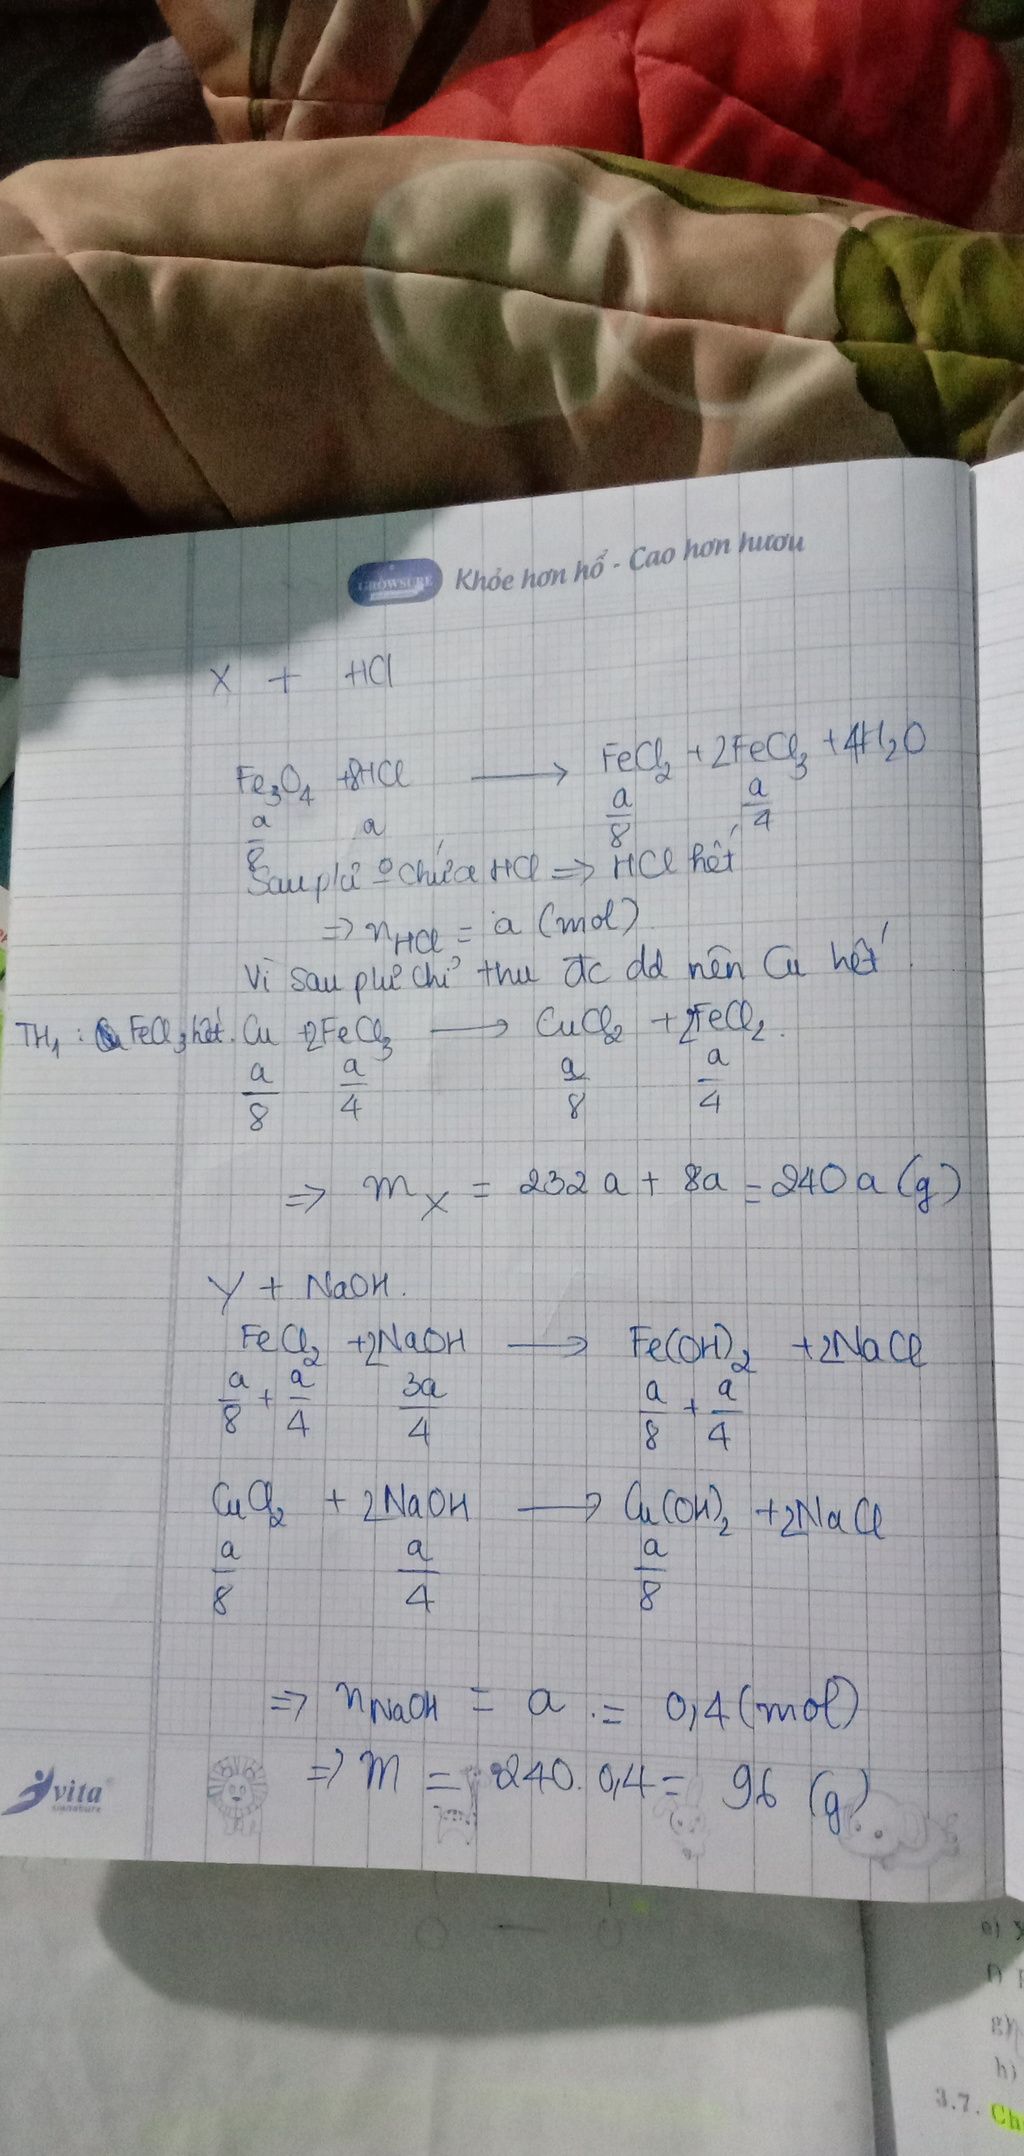 GROWSURE Khỏe hơn hổ - Cao hơn hươu
X + HCl
Fe₃O₄ + 8HCl ⟶ FeCl₂ + 2FeCl₃ + 4H₂O
a/8 a a/8 a/4
Sau pứ chứa HCl => HCl hết
=> nHCl = a (mol)
Vì sau pứ chỉ thu đc dd nên Cu hết.
TH₁: FeCl₃ hết. Cu + 2FeCl₃ ⟶ CuCl₂ + 2FeCl₂.
a/8 a/4 a/8 a/4
=> mX = 232a + 8a = 240a (g)
Y + NaOH.
FeCl₂ + 2NaOH ⟶ Fe(OH)₂ + 2NaCl
a/8 + a/4 3a/4 a/8 + a/4
CuCl₂ + 2NaOH ⟶ Cu(OH)₂ + 2NaCl
a/8 a/4 a/8
=> nNaOH = a = 0,4 (mol)
=> m = 240. 0,4 = 96 (g)
vita
h)
3.7. Ch